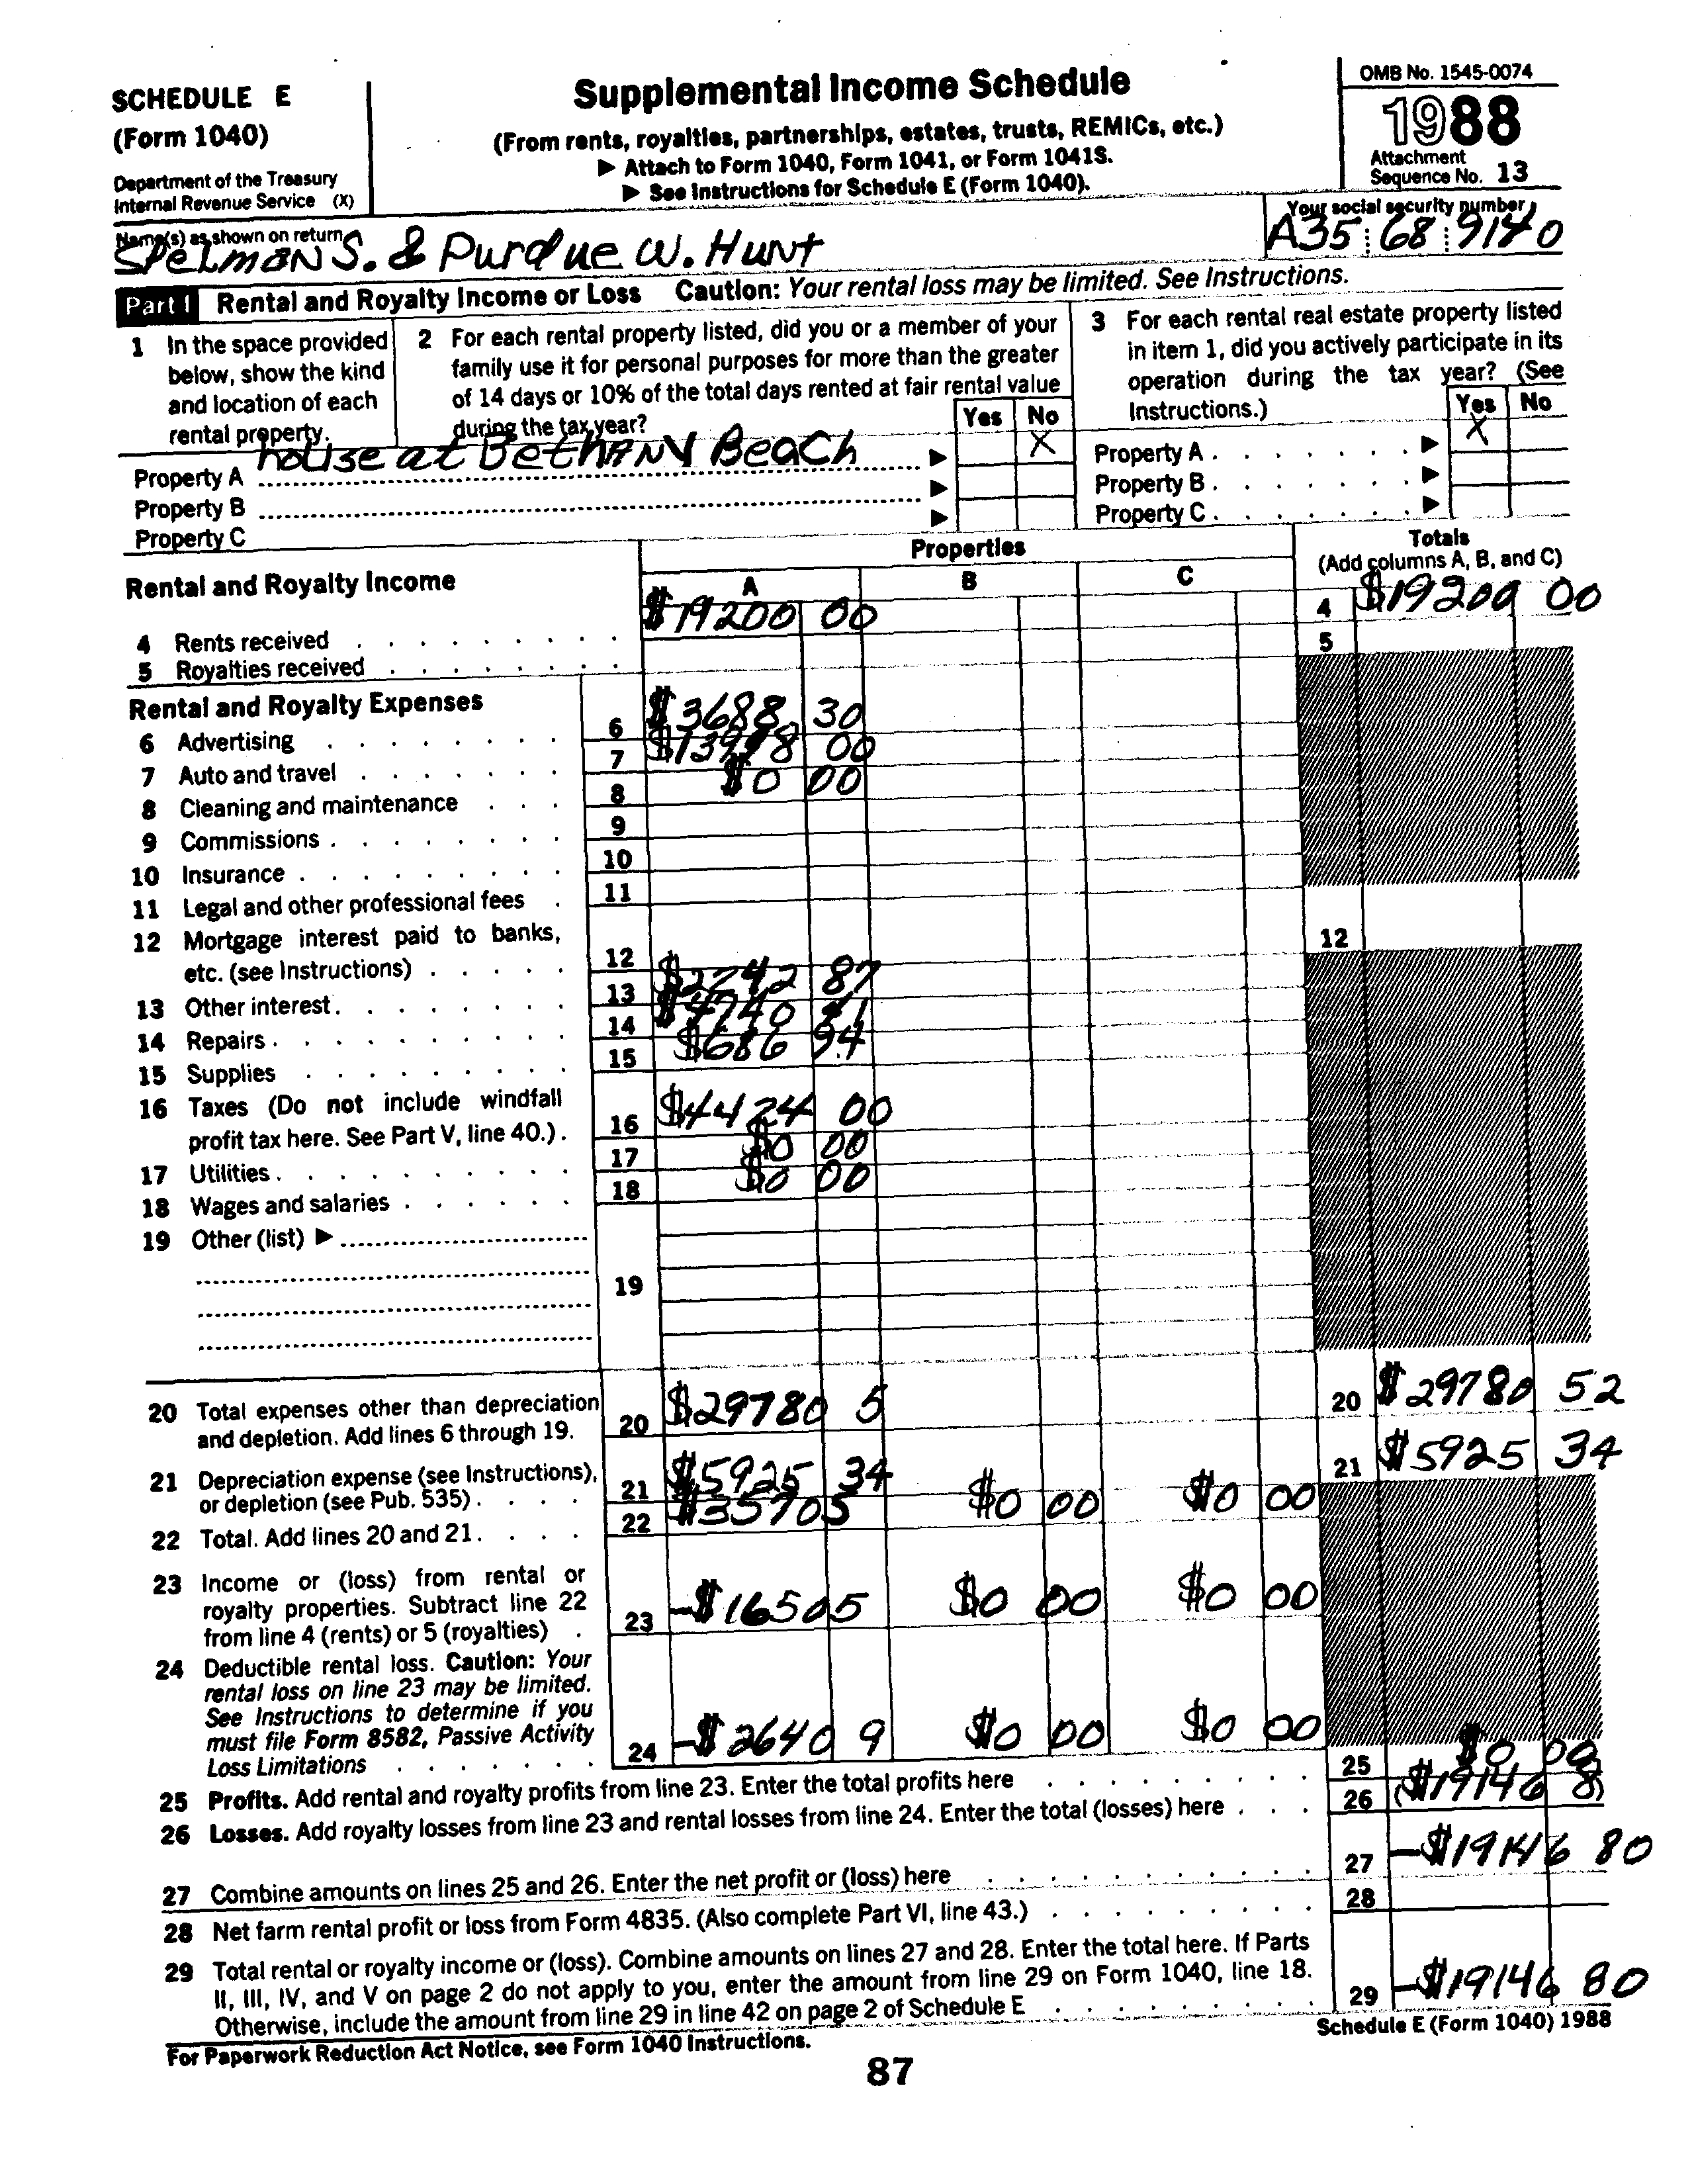 SCHEDULE E
(Form 1040)
Department of the Treasury
Internal Revenue Service (X)
Supplemental Income Schedule
(From rents, royalties, partnerships, estates, trusts, REMICs, etc.)
▶ Attach to Form 1040, Form 1041, or Form 1041S.
▶ See Instructions for Schedule E (Form 1040).
OMB No. 1545-0074
1988
Attachment
Sequence No. 13
Name(s) as shown on return
Spelman S. & Purdue W. Hunt
Your social security number
A35 68 9140
Part I Rental and Royalty Income or Loss Caution: Your rental loss may be limited. See Instructions.
1 In the space provided below, show the kind and location of each rental property.
2 For each rental property listed, did you or a member of your family use it for personal purposes for more than the greater of 14 days or 10% of the total days rented at fair rental value during the tax year?
Yes No
3 For each rental real estate property listed in item 1, did you actively participate in its operation during the tax year? (See Instructions.)
Yes No
Property A house at Bethany Beach ▶ X Property A . . . . . . . ▶ X
Property B ▶ Property B . . . . . . . ▶
Property C ▶ Property C . . . . . . . ▶
Rental and Royalty Income
Properties
A B C
Totals
(Add columns A, B, and C)
4 Rents received $19200 00 4 $19200 00
5 Royalties received 5
Rental and Royalty Expenses
6 Advertising 6 $3688 30
7 Auto and travel 7 00
8 Cleaning and maintenance 8 $0 00
9 Commissions 9
10 Insurance 10
11 Legal and other professional fees 11
12 Mortgage interest paid to banks, etc. (see Instructions) 12 12
13 Other interest 13 $2242 87
14 Repairs 14
15 Supplies 15 $686 94
16 Taxes (Do not include windfall profit tax here. See Part V, line 40.) 16 $4424 00
17 Utilities 17 $0 00
18 Wages and salaries 18 $0 00
19 Other (list) ▶
19
20 Total expenses other than depreciation and depletion. Add lines 6 through 19. 20 $29780 5 20 $29780 52
21 Depreciation expense (see Instructions), or depletion (see Pub. 535) 21 $5925 34 21 $5925 34
22 Total. Add lines 20 and 21 22 $35705 $0 00 $0 00
23 Income or (loss) from rental or royalty properties. Subtract line 22 from line 4 (rents) or 5 (royalties) 23 -$16505 $0 00 $0 00
24 Deductible rental loss. Caution: Your rental loss on line 23 may be limited. See Instructions to determine if you must file Form 8582, Passive Activity Loss Limitations 24 -$2640 9 $0 00 $0 00
25 Profits. Add rental and royalty profits from line 23. Enter the total profits here 25 $0 00
26 Losses. Add royalty losses from line 23 and rental losses from line 24. Enter the total (losses) here 26 ($19146 8)
27 Combine amounts on lines 25 and 26. Enter the net profit or (loss) here 27 -$19146 80
28 Net farm rental profit or loss from Form 4835. (Also complete Part VI, line 43.) 28
29 Total rental or royalty income or (loss). Combine amounts on lines 27 and 28. Enter the total here. If Parts II, III, IV, and V on page 2 do not apply to you, enter the amount from line 29 on Form 1040, line 18. Otherwise, include the amount from line 29 in line 42 on page 2 of Schedule E 29 -$19146 80
For Paperwork Reduction Act Notice, see Form 1040 Instructions.
Schedule E (Form 1040) 1988
87